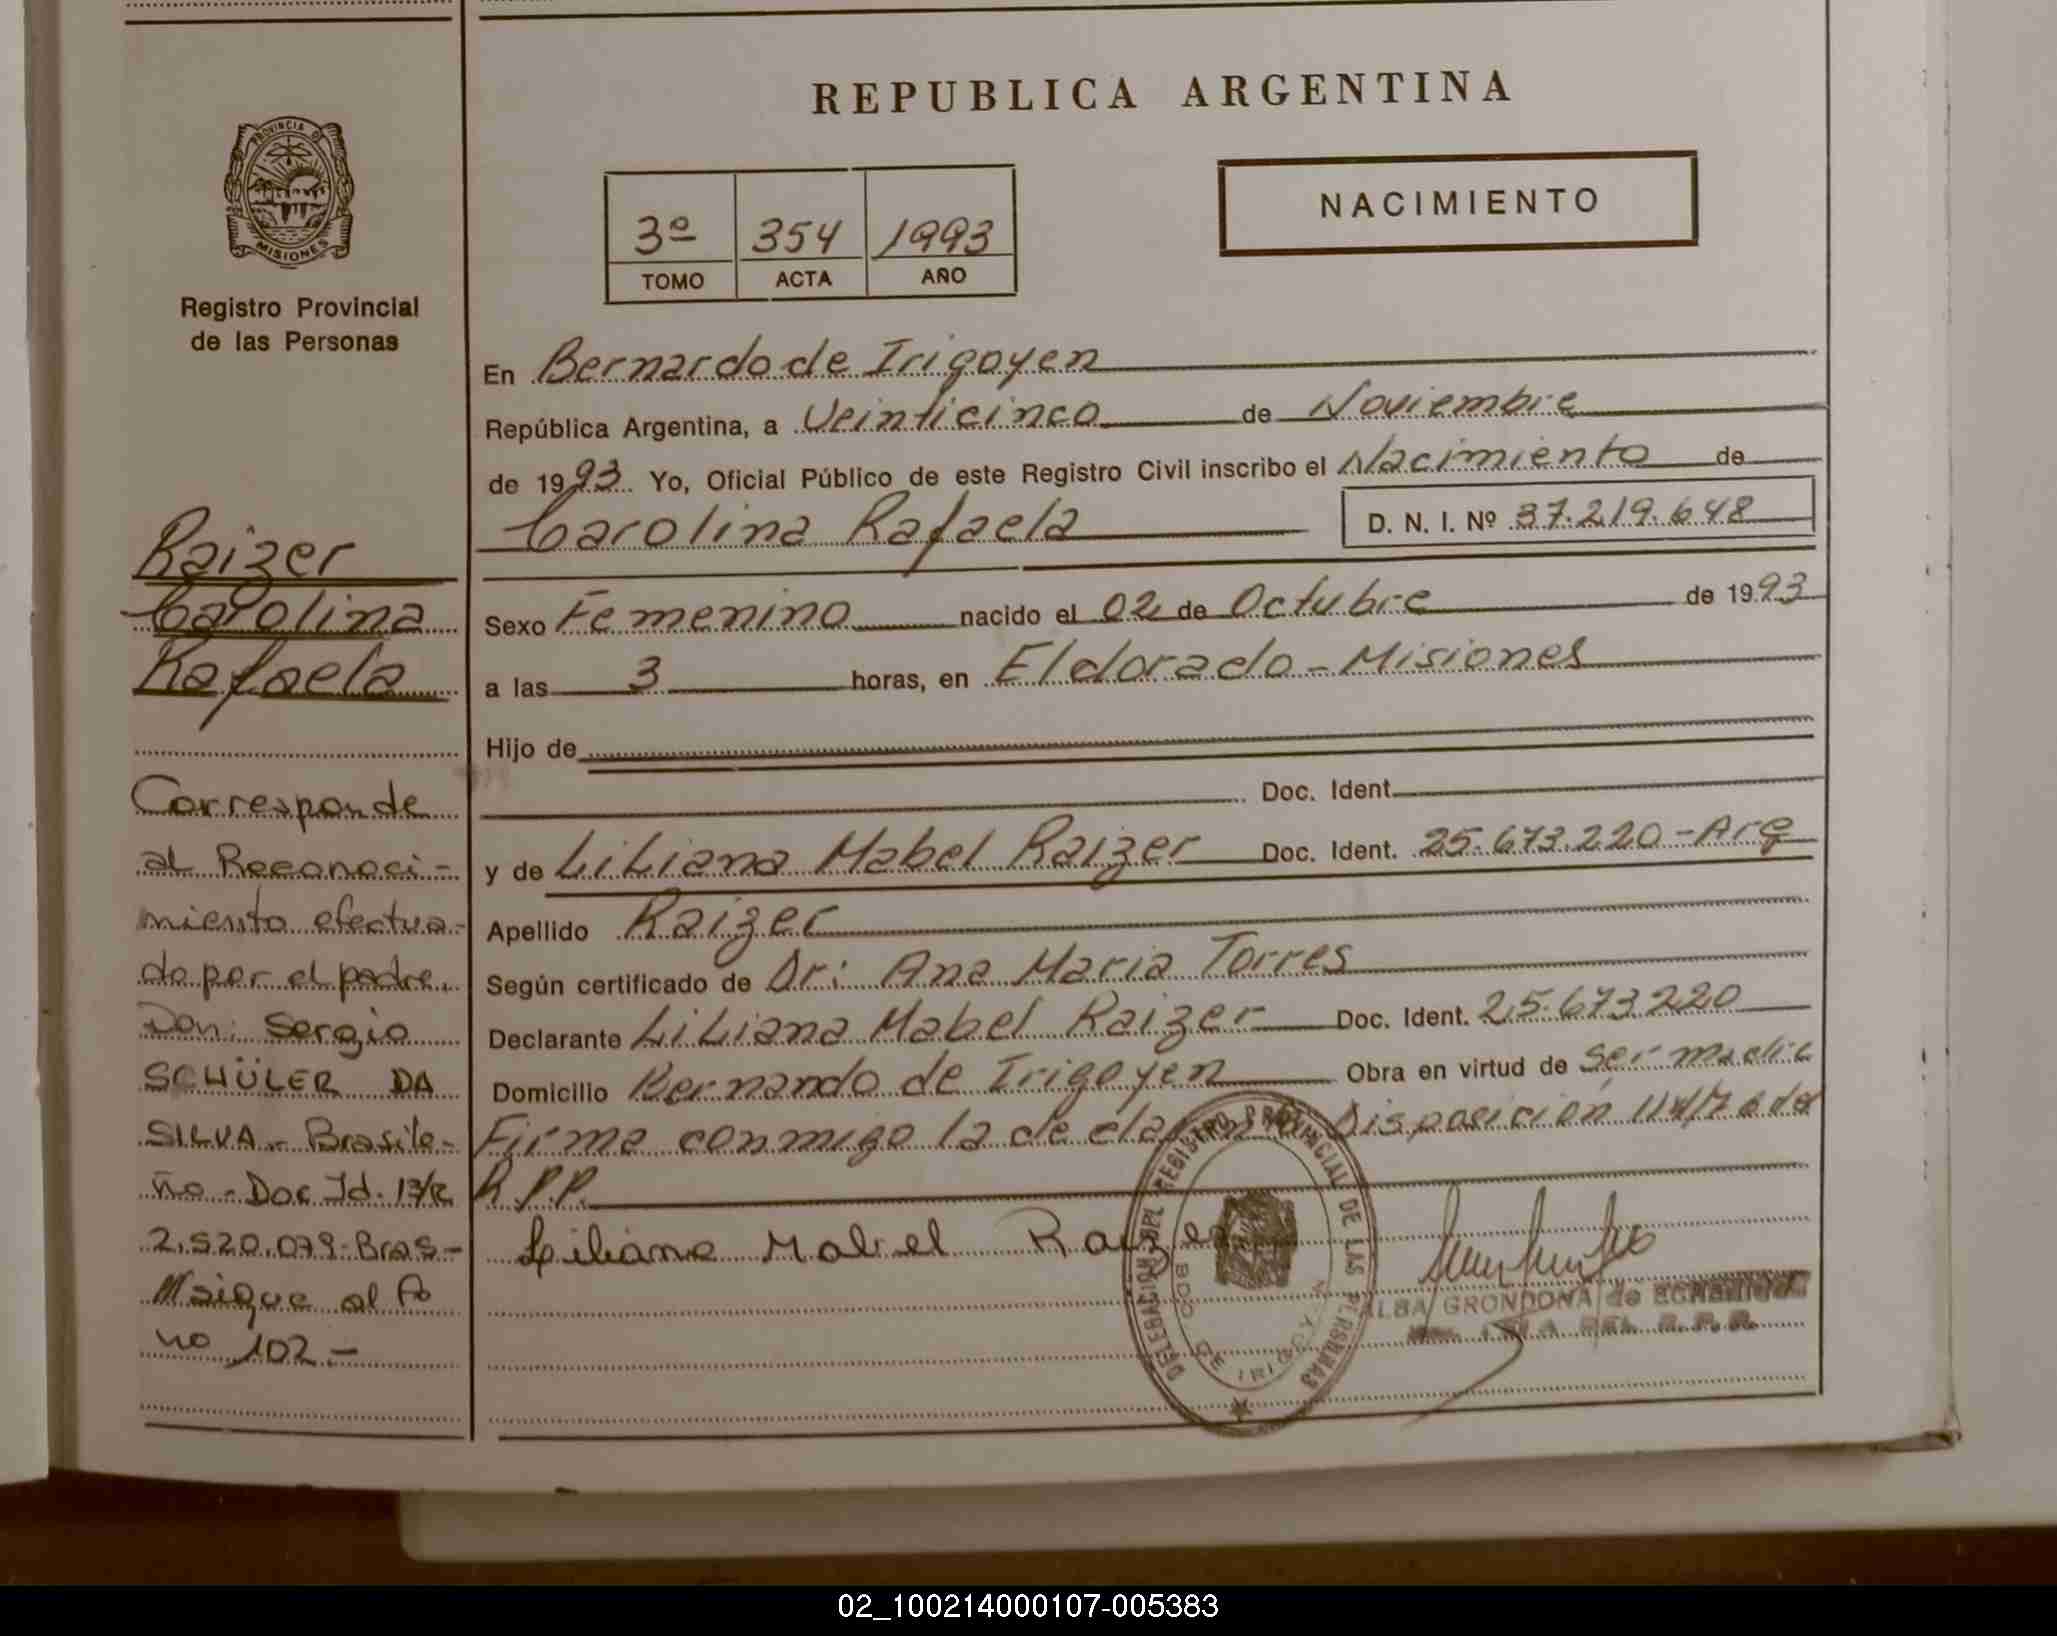 REPUBLICA ARGENTINA
PROVINCIA DE
MISIONES
Registro Provincial
de las Personas
3º 354 1993
TOMO ACTA AÑO
NACIMIENTO
En Bernardo de Irigoyen
República Argentina, a Veinticinco de Noviembre
de 1993 Yo, Oficial Público de este Registro Civil inscribo el Nacimiento de
Carolina Rafaela
D. N. I. Nº 37.219.648
Sexo Femenino nacido el 02 de Octubre de 1993
a las 3 horas, en Eldorado - Misiones
Hijo de
Doc. Ident.
y de Liliana Mabel Raizer Doc. Ident. 25.673.220 - Arg
Apellido Raizer
Según certificado de Dr: Ana Maria Torres
Declarante Liliana Mabel Raizer Doc. Ident. 25.673220
Domicilio Bernardo de Irigoyen Obra en virtud de ser madre
Firma conmigo la de Disposición del
R.P.P.
Liliana Mabel Raizer
Raizer
Carolina
Rafaela
Corresponde
al Reconoci-
miento efectua-
do por el padre.
Don: Sergio
SCHÜLER DA
SILVA - Brasile-
ño - Doc Id. 13/R
2.520.079 - Bras -
sigue al Fo
no 102.-
DELEGACION DEL REGISTRO PROVINCIAL DE LAS PERSONAS
BDO DE IRIGOYEN
ALBA GRONDONA de
DEL R.P.P.
02_100214000107-005383